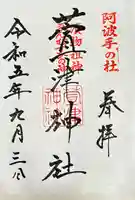 阿波手の杜
奉拝
萱津神社
令和五年九月三日